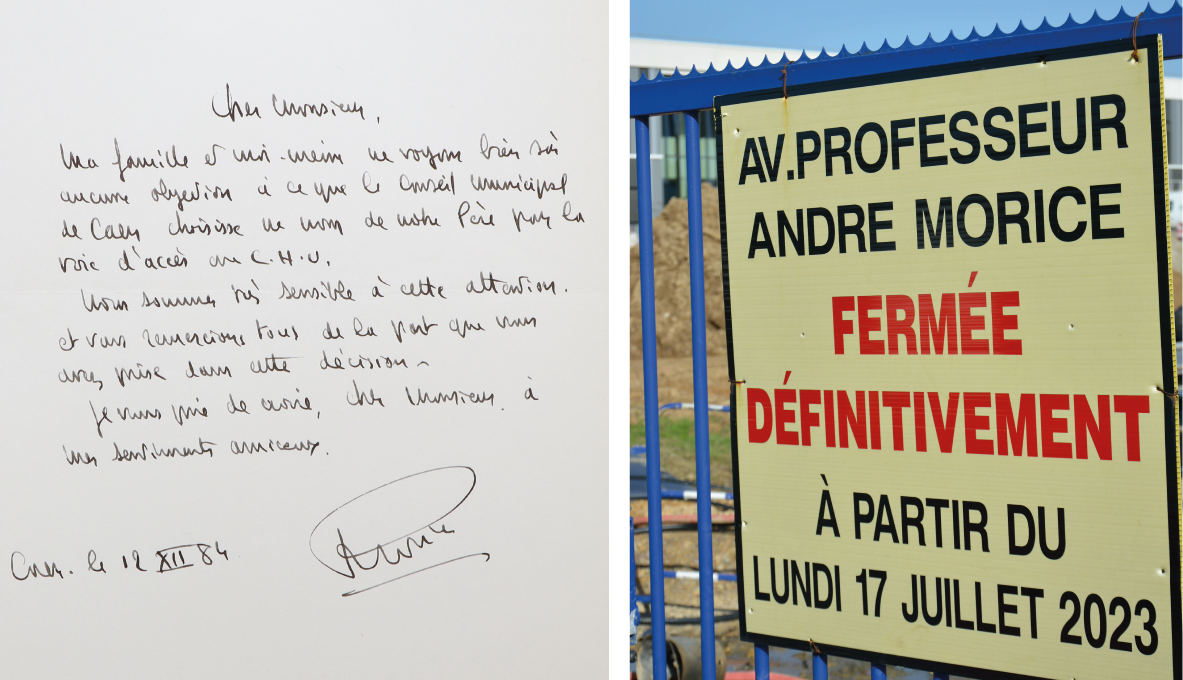 Cher Monsieur,
Ma famille et moi-même ne voyons bien sûr
aucune objection à ce que le Conseil Municipal
de Caen choisisse le nom de notre Père pour la
voie d'accès au C.H.U.
Nous sommes très sensible à cette attention.
et vous remercions tous de la part que vous
avez prise dans cette décision -
Je vous prie de croire, cher Monsieur, à
mes sentiments amicaux.
Caen. le 12 XII 84
AV.PROFESSEUR
ANDRE MORICE
FERMÉE
DÉFINITIVEMENT
À PARTIR DU
LUNDI 17 JUILLET 2023